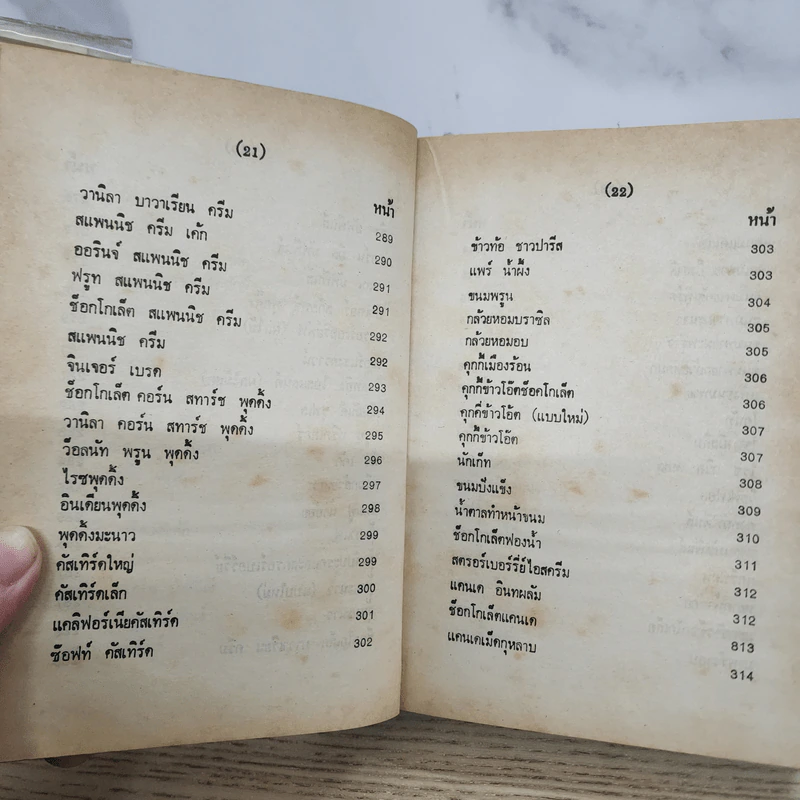 (21)
หน้า
วานิลา บาวาเรียน ครีม 289
สแพนนิช ครีม เค้ก 290
ออรินจ์ สแพนนิช ครีม 291
ฟรูท สแพนนิช ครีม 291
ช็อกโกเล็ต สแพนนิช ครีม 292
สแพนนิช ครีม 292
จินเจอร์ เบรด 293
ช็อกโกเล็ต คอร์น สทาร์ช พุดดิ้ง 294
วานิลา คอร์น สทาร์ช พุดดิ้ง 295
ว๊อลนัท พรูน พุดดิ้ง 296
ไรซพุดดิ้ง 297
อินเดียนพุดดิ้ง 298
พุดดิ้งมะนาว 299
คัสเทิร์ดใหญ่ 299
คัสเทิร์ดเล็ก 300
แคลิฟอร์เนียคัสเทิร์ด 301
ซ๊อฟท์ คัสเทิร์ด 302
(22)
หน้า
ข้าวท้อ ชาวปารีส 303
แพร์ น้ำผึ้ง 303
ขนมพรูน 304
กล้วยหอมบราซิล 305
กล้วยหอมอบ 305
คุกกี้เมืองร้อน 306
คุกกี้ข้าวโอ๊ตช็อคโกเล็ต 306
คุกคี่ข้าวโอ้ต (แบบใหม่) 307
คุกกี้ข้าวโอ๊ต 307
นักเก็ท 308
ขนมปังแข็ง 309
น้ำตาลทำหน้าขนม 310
ช็อกโกเล็ตฟองน้ำ 311
สตรอร์เบอร์รี่ย์ไอสครีม 312
แคนเด อินทผลัม 312
ช็อกโกเล็ตแคนเด 813
แคนเดเม็ดกุหลาบ 314